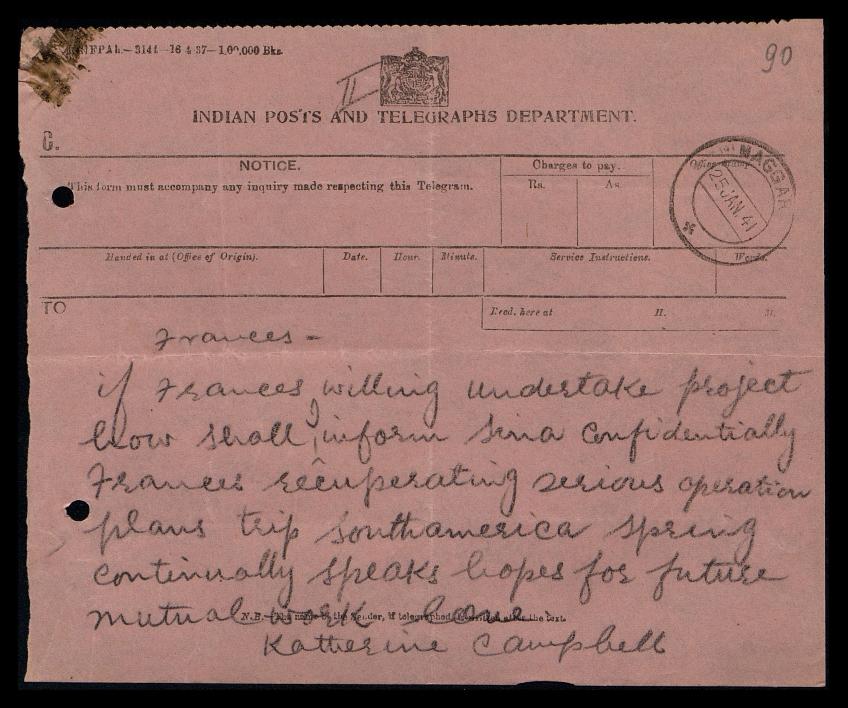 3141-16-4-37-1,00,000 Bks.
90
II
INDIAN POSTS AND TELEGRAPHS DEPARTMENT.
C.
NOTICE.
This form must accompany any inquiry made respecting this Telegram.
Charges to pay.
Rs. As.
Office Stamp
NAGGAR
25 JAN. 41
Handed in at (Office of Origin). Date. Hour. Minute. Service Instructions. Words.
TO
Recd. here at H. M.
Frances-
if Frances willing undertake project
how shall I inform Sina confidentially
Frances recuperating serious operation
plans trip southamerica spring
continually speaks hopes for future
mutual work love.
N.B.-The name of the Sender, if telegraphed, is written after the text.
Katherine Campbell